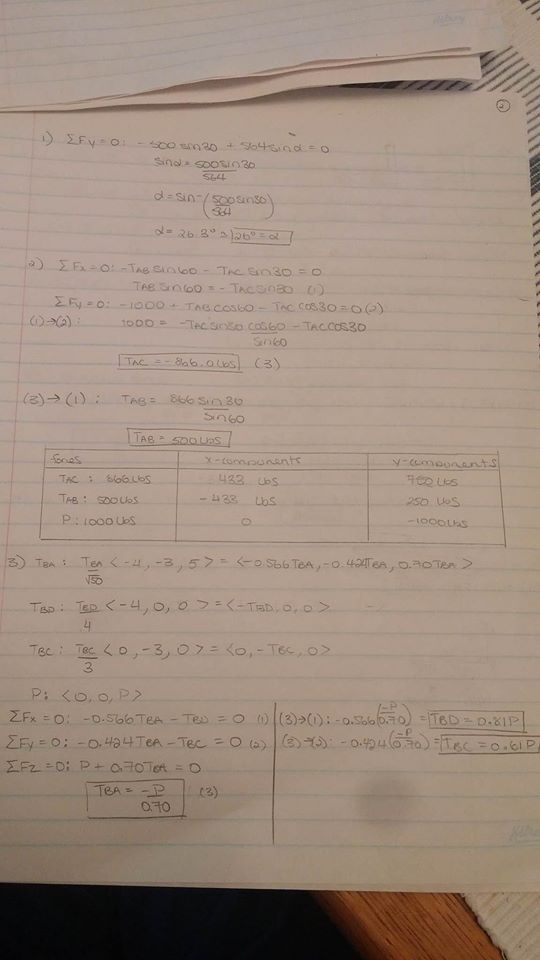 2
1) ΣFy=0: -500sin30 + 564sinα = 0
sinα = 500sin30
564
α = sin⁻(500sin30
564)
α = 26.3° ≈ 26° = α
2) ΣFx=0: -TAB sin60 - TAC sin30 = 0
TAB sin60 = -TAC sin30 (1)
ΣFy=0: -1000 + TAB cos60 - TAC cos30 = 0 (2)
(1)→(2): 1000 = -TAC sin30 cos60 - TAC cos30
sin60
TAC = -866.0 lbs (3)
(3)→(1): TAB = 866 sin30
sin60
TAB = 500 lbs
forces x-components y-components
TAC: 866 lbs 433 lbs 750 lbs
TAB: 500 lbs -433 lbs 250 lbs
P: 1000 lbs 0 -1000 lbs
3) TBA: TBA <-4, -3, 5> = <-0.566TBA, -0.424TBA, 0.70TBA>
√50
TBD: TBD <-4, 0, 0> = <-TBD, 0, 0>
4
TBC: TBC <0, -3, 0> = <0, -TBC, 0>
3
P: <0, 0, P>
ΣFx=0: -0.566TBA - TBD = 0 (1)
ΣFy=0: -0.424TBA - TBC = 0 (2)
ΣFz=0: P + 0.70TBA = 0
TBA = -P (3)
0.70
(3)→(1): -0.566(-P/0.70) = TBD = 0.81P
(3)→(2): -0.424(-P/0.70) = TBC = 0.61P
Hilroy